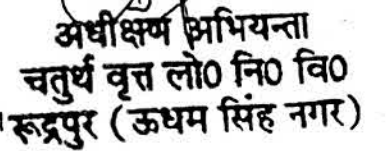 अधीक्षण अभियन्ता
चतुर्थ वृत्त लो0 नि0 वि0
रूद्रपुर ( ऊधम सिंह नगर )